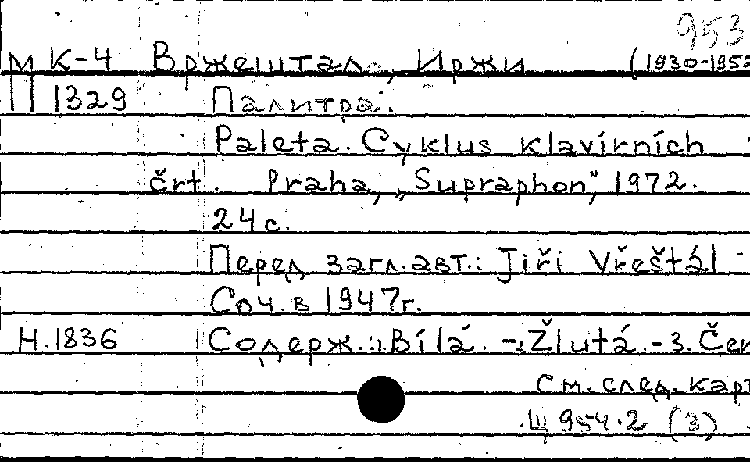 953
М К-4 Вржештал, Иржи (1930-1952
П 1329 Палитра.
Paleta. Cyklus klavírních
črt. Praha, „Supraphon", 1972.
24 с.
Перед загл. авт.: Jiří Vřeštál
Соч. в 1947г.
Н.1836 Содерж.: Bílá. - Žlutá. - 3. Čer
См. след. карт
Щ 954.2 (3)